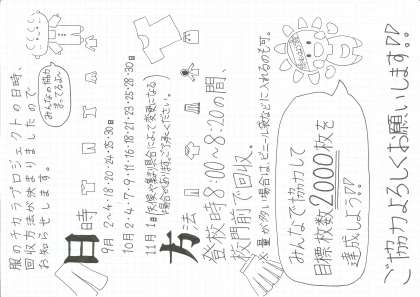 服のチカラプロジェクトの日時、
回収方法が決まりましたので
お知らせします。
みんなの協力
まってるよ〜
日時
9月 2~4・18・20・24・25・30日
10月 2・4・7・9・11・16・18・21・23・25・28・30日
11月 1日(天候や量の場合によって変更になる
場合があります。ご了承ください。)
方法
登校時8:00~8:20の間、
校門前で回収。
※量が多い場合は、ビニール袋などに入れるのも可。
みんなで協力して
目標枚数2000枚を
達成しよう!!
ご協力よろしくお願いします!!